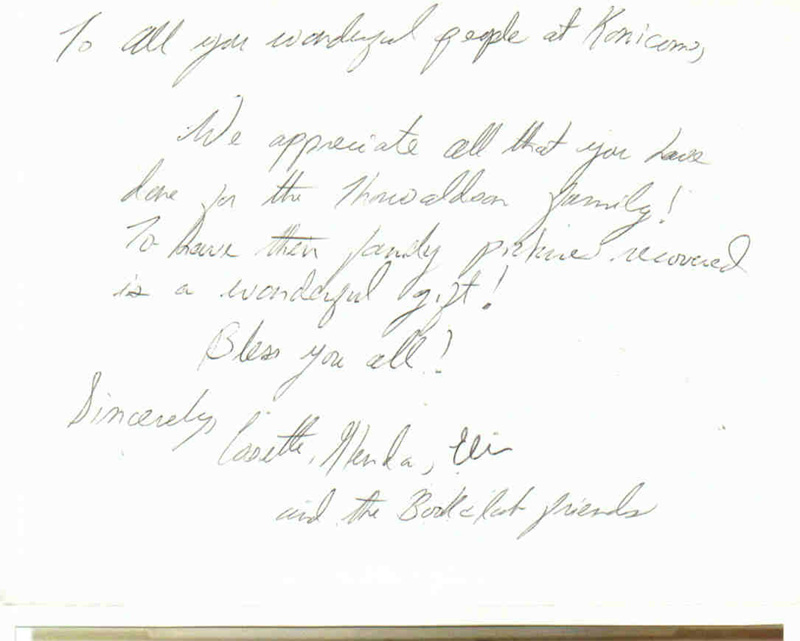 To all you wonderful people at Konicom,
We appreciate all that you have
done for the Thorwaldson family!
To have their family pictures recovered
is a wonderful gift!
Bless you all!
Sincerely,
and the Bookclub friends